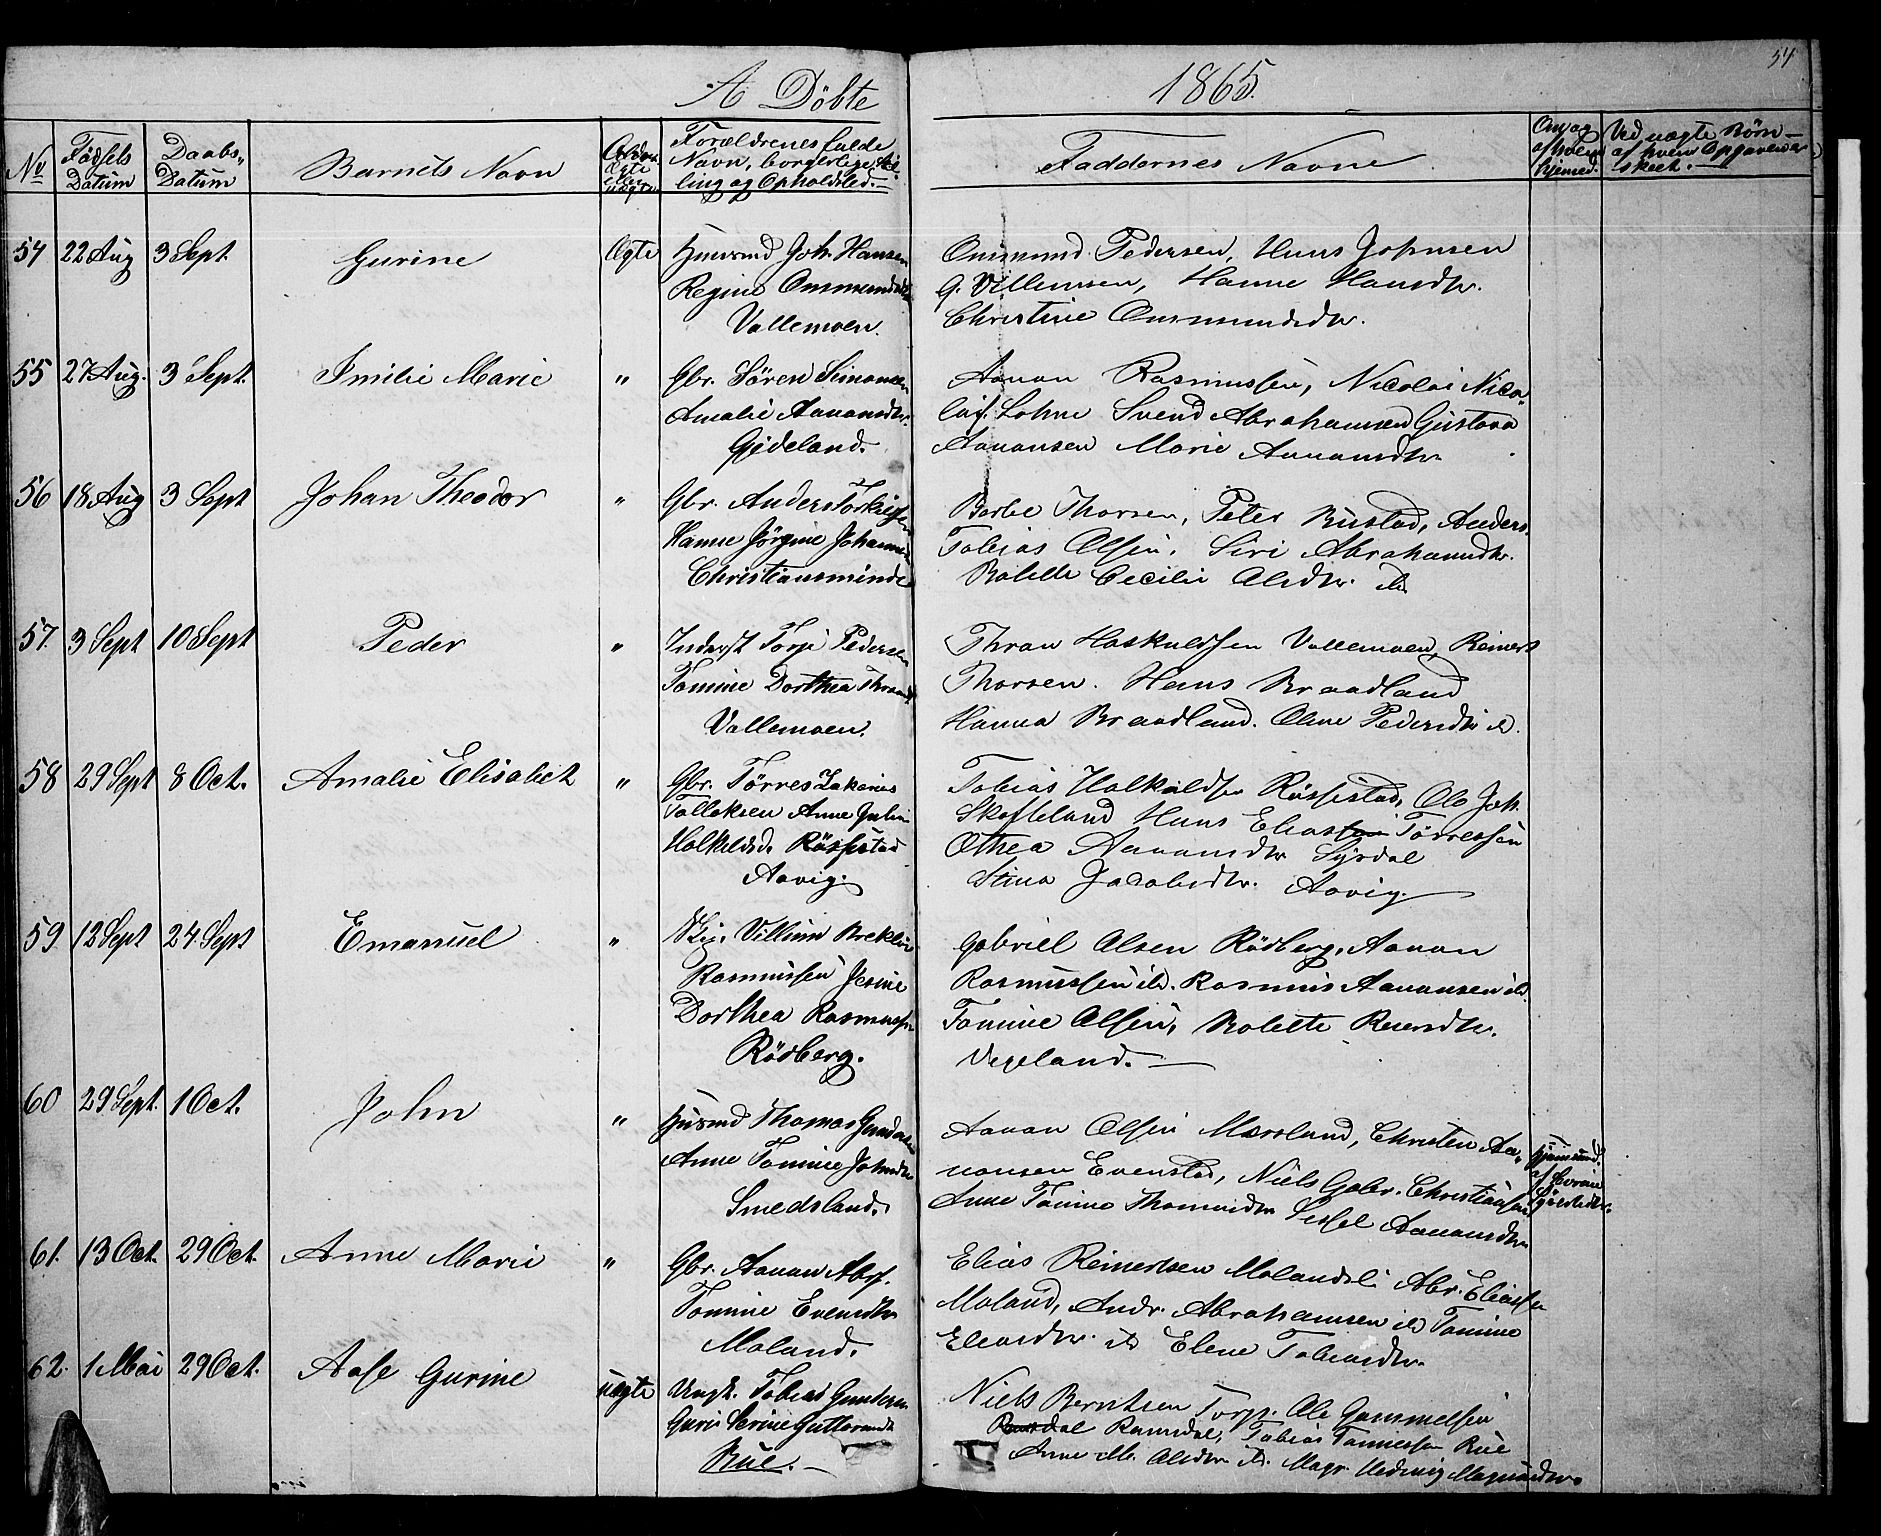 A Döbte 1865.
54
No Fødsels Datum Daabs Datum Barnets Navn Ægte eller uægte Forældrenes fulde Navn, borgerlige Stilling og Opholdsted. Faddernes Navne Om og af hvem hjemmed. Ved uægte Børn af hvem Opgaven er skeet.
54 22 Aug 3 Sept. Gurine Ægte Huusmd Joh. Hansen
Regine Ommunds
Vallemoen.
Ommund Pedersen, Hans Johnsen
G. Villumsen, Hanne Hansdtr.
Christine Ommundsdtr.
55 27 Aug. 3 Sept. Emilie Marie " Gbr. Sören Simonsen
Amalie Aanonsdtr.
Gjdeland.
Aanon Rasmussen, Nicolai Nico-
laif. Lohne Svend Abrahamsen Gustava
Aanonsen Marie Aanonsdtr.
56 18 Aug 3 Sept Johan Theodor " Gbr. Anders Torkiesen
Hanne Jörgine Johanne
Christiansminde
Thorsen, Peter Bustad, Anders
Tobias Olsen, Siri Abrahamsdtr.
Bolette Cecilie Olsdtr. ib
57. 3 Sept 10 Sept Peder " Inderst Torje Pedersen
Tomine Dorthea
Vallemoen.
Thron Haskuldsen Vallemoen, Reinert
Thorsen. Hans Braadland
Hanna Braadland. Oline Pedersdtr ib.
58 29 Sept 8 Oct. Amalie Elisabeth " Gbr. Törres Zakarias
Tolleksen Anne Julie
Holkeldsd. Røssestad
Aavig.
Tobias Holkeldsen Røssestad, Ole Joh.
Skofteland Hans Elias Törressen
Othea Aanonsdtr Syrdal
Stina Jacobsdtr. Aavig.
59 12 Sept 24 Sept Emanuel " Villum Breklin
Rasmussen Jesine
Dorthea Rasmussen
Rödberg.
Gabriel Olsen Rödberg, Aanon
Rasmussen ib. Rasmus Aanonsen ib
Tomine Olsen, Bolette Reiersdtr.
Vegeland.
60 29 Sept. 1 Oct. John " Husmd Thomas
Anne Tomine Johnsdtr
Smedsland.
Aanon Olsen Mæsland, Christen Aa-
nonsen Evenstad, Niels Gabr. Christiansen
Anne Tomine Thomasdtr Sissel Aanonsdtr
hjemmed.
af
61. 13 Oct. 29 Oct. Anne Marie " Gbr. Aanon Abrs.
Tomine Evensdtr
Moland.
Elias Reinertsen Molandsli Abr. Eliassen
Moland, Andr. Abrahamsen ib Tomine
Eliasdtr. ib Elene Tobiasdtr.
62. 1 Mai 29 Oct. Aase Gurine uægte Ungk. Tobias Gundersen
Guri Serine Guttormsd
Rue.
Niels Berntsen Torp. Ole Gammelsen
Ramsdal, Tobias Tønnessen Rue
Anne M. Olsdtr ib. Magr. Hedevig Magnusdtr.